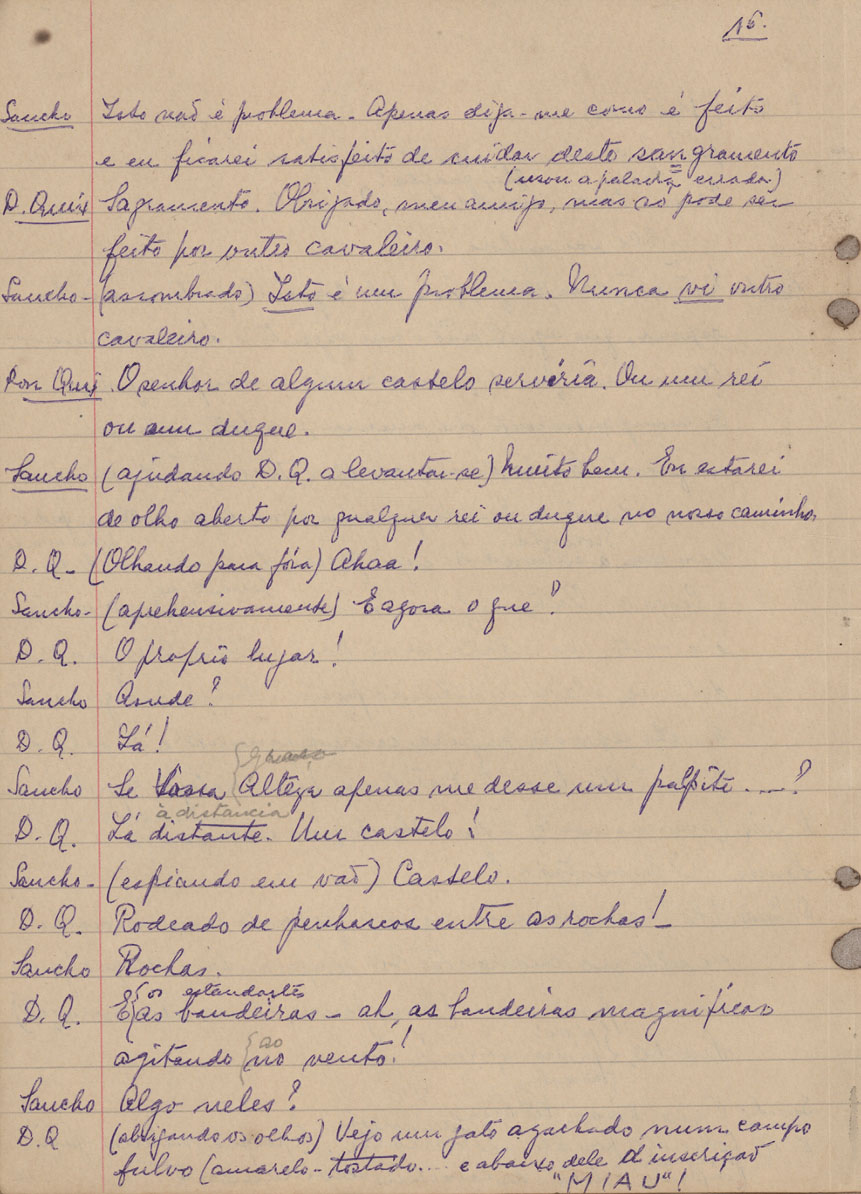 15.
Sancho Isto não é problema. Apenas diga-me como é feito
e eu ficarei satisfeito de cuidar deste sangramento
(usou a palavra errada)
D. Quix Sagramento. Obrigado, meu amigo, mas só pode ser
feito por outro cavaleiro.
Sancho - (assombrado) Isto é um problema. Nunca vi outro
cavaleiro.
Don Qui . O senhor de algum castelo serviria. Ou um rei
ou um duque.
Sancho (ajudando D. Q. a levantar-se) Muito bem. Eu estarei
de olho aberto por qualquer rei ou duque no nosso caminho.
D. Q - (Olhando para fóra) Ahaa!
Sancho - (aprehensivamente) E agora o que?
D. Q. O proprio lugar!
Sancho Aonde?
D. Q. Lá!
Sancho Se Vossa Alteza apenas me desse um palpite ...?
à distancia
D. Q. Lá distante. Um castelo!
Sancho - (espiando em vão) Castelo.
D. Q. Rodeado de penhascos entre as rochas! -
Sancho Rochas.
os estandartes
D. Q. E as bandeiras - ah, as bandeiras magníficas
ao
agitando no vento!
Sancho Algo neles?
D. Q (abrigando os olhos) Vejo um gato agachado num campo
fulvo (amarelo-tostado... e abaixo dele a inscrição
"MIAU"!